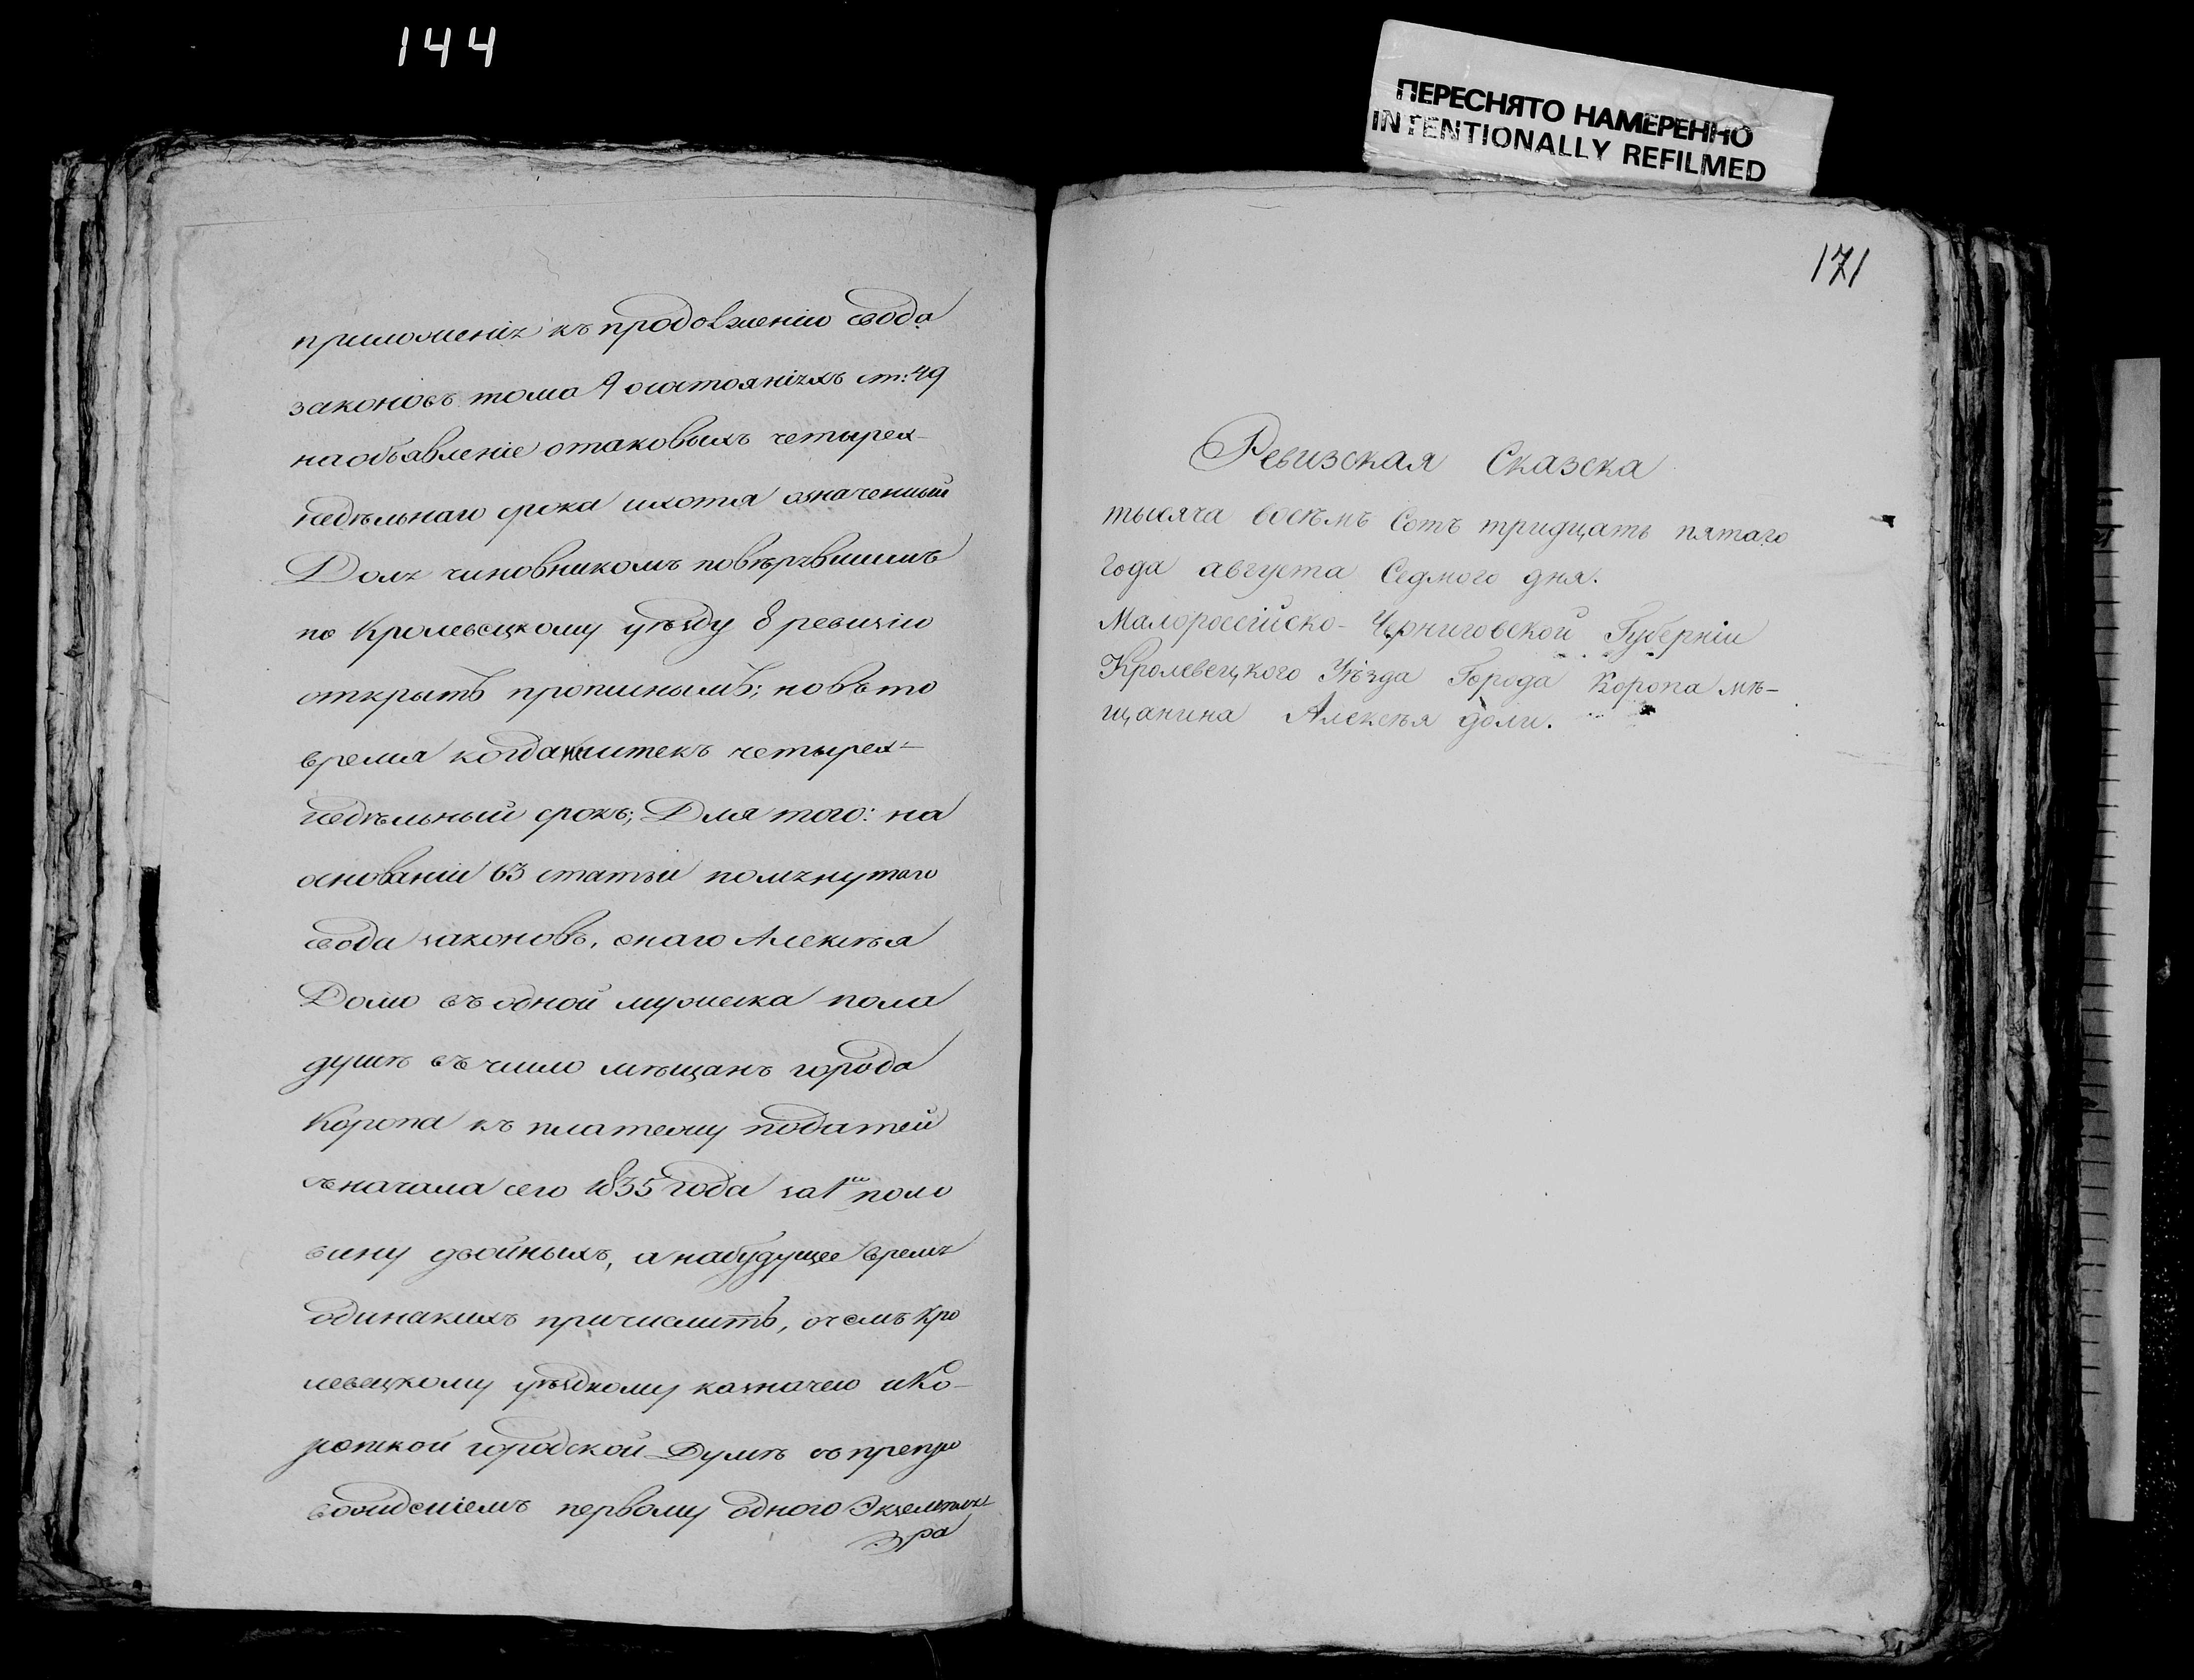 144
ПЕРЕСНЯТО НАМЕРЕННО
INTENTIONALLY REFILMED
приложенія къ продолженію свода
законовъ тома 9 осостояніяхъ ст: 49
наобъявленіе отаковыхъ четырех-
недѣльнаго срока ихотя означенный
Доля чиновникомъ повѣрявшимъ
по Кролевецкому уѣзду 8 ревизію
открытъ прописнымъ; новъто
время когда истекъ четырех-
недѣльный срокъ; Для того: на
основаніи 63 статьи помянутого
свода законовъ, онаго Алексѣя
Долю въ одной мужеска пола
душѣ въ число мѣщанъ города
Коропа къ платежу податей
съ начала сего 1835 года за 1ю поло
вину двойныхъ, а набудущее время
одинакихъ причислить, очемъ Кро
левецкому уѣздному казначею иКо-
ропской городской Думѣ съ препро
вожденіемъ первому одного Экземпля
ра
171
Ревизская Сказска
тысяча восѣмъ Сотъ тридцать пятаго
года августа Седмого дня.
Малороссійско-Черниговской Губерніи
Кролевецкого Уѣзда Города Коропа мѣ-
щанина Алексѣя доли.